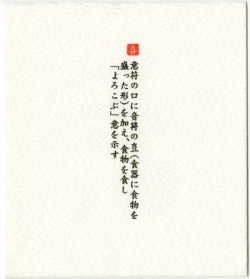 意符の口に音符の壴（食器に食物を
盛った形）を加え、食物を食し
「よろこぶ」意を示す